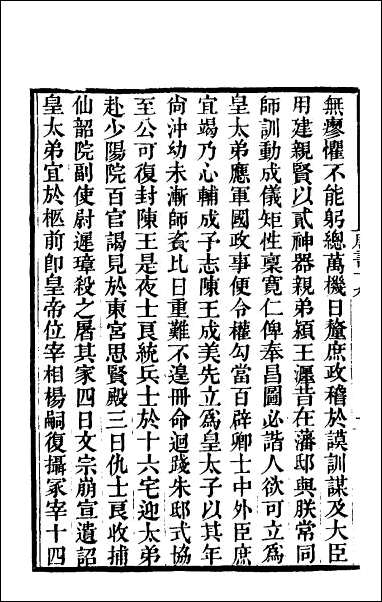 無瘳懼不能躬總萬機日釐庶政稽於謨訓謀及大臣
用建親賢以貳神器親弟潁王瀍昔在藩邸與朕常同
師訓動成儀矩性稟寬仁俾奉昌圖必諧人欲可立為
皇太弟應軍國政事便令權勾當百辟卿士中外臣庶
宜竭乃心輔成予志陳王成美先立為皇太子以其年
尚沖幼未漸師資比日重難不遑冊命迴踐朱邸式協
至公可復封陳王是夜士良統兵士於十六宅迎太弟
赴少陽院百官謁見於東宮思賢殿三日仇士良收捕
仙韶院副使尉遲璋殺之屠其家四日文宗崩宣遺詔
皇太弟宜於柩前即皇帝位宰相楊嗣復攝冢宰十四